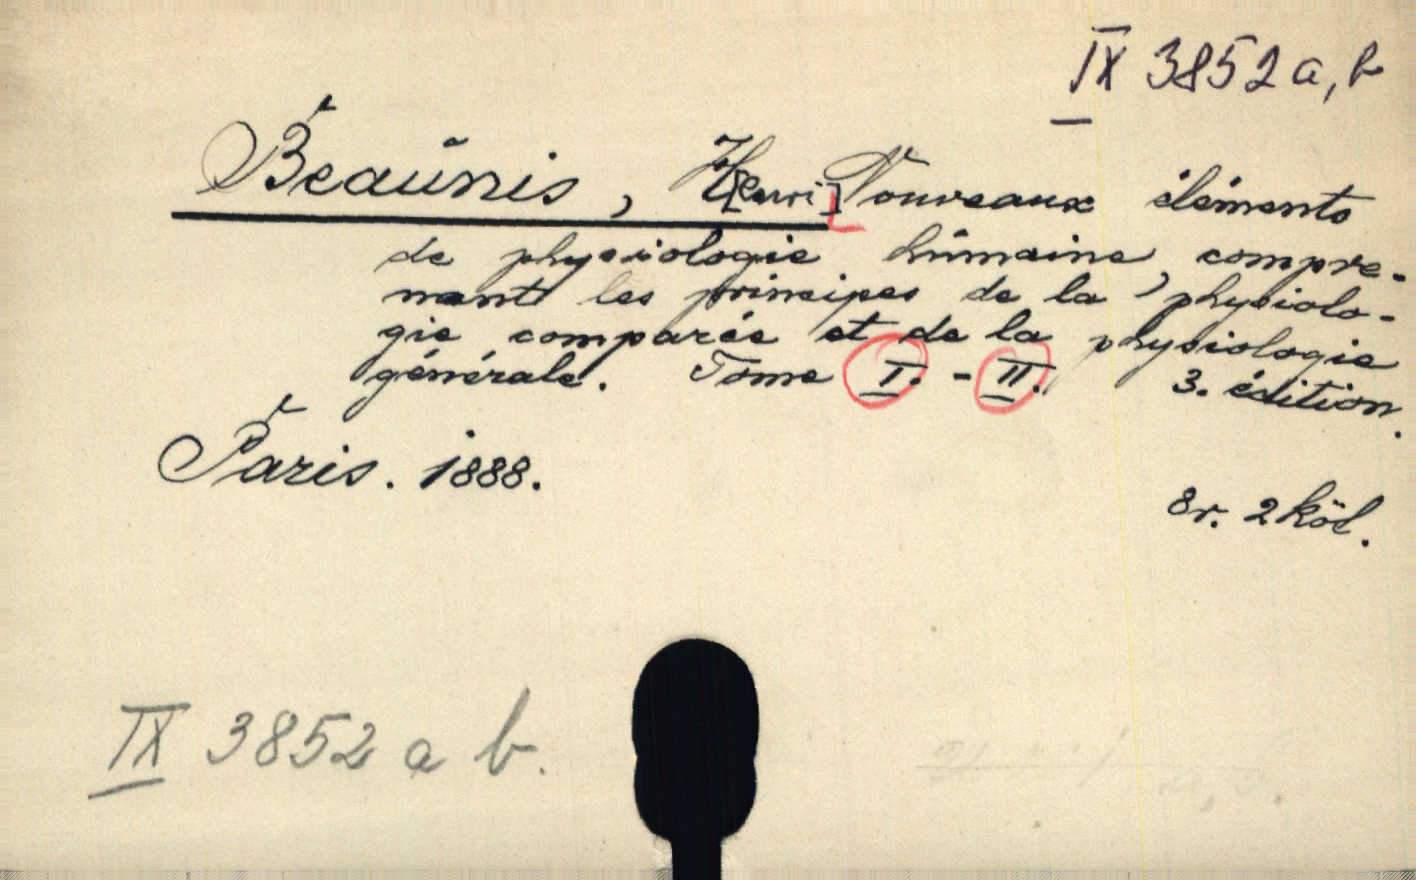 IX 3852 a, b
Beaunis, H[enri] Nouveaux éléments
de physiologie humaine, compre-
nant les principes de la physiolo-
gie comparée et de la physiologie
générale. Tome I. - II. 3. édition.
Paris. 1888.
8r. 2 köt.
IX 3852 a b.